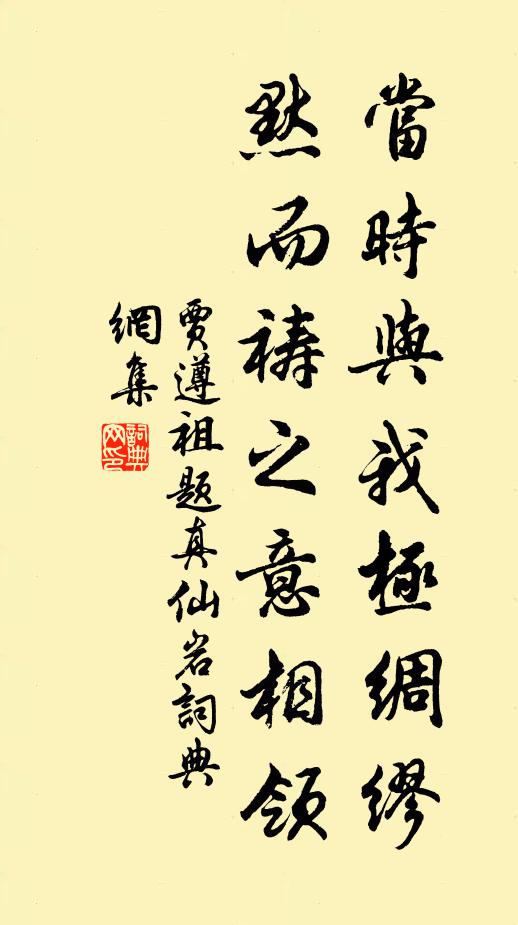 當時與我極綢繆
默而禱之意相領
賈遵祖題真仙岩詞典
網集
詞典
网印